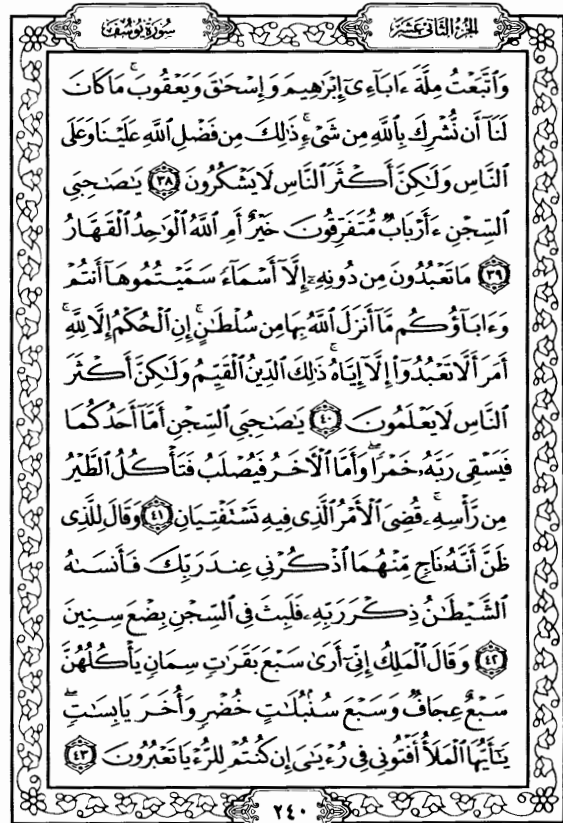 سُورَةُ يُوسُفَ
الجُزءُ الثَّانِي عَشَر
وَٱتَّبَعْتُ مِلَّةَ ءَابَآءِىٓ إِبْرَٰهِيمَ وَإِسْحَٰقَ وَيَعْقُوبَ ۚ مَا كَانَ
لَنَآ أَن نُّشْرِكَ بِٱللَّهِ مِن شَىْءٍ ۚ ذَٰلِكَ مِن فَضْلِ ٱللَّهِ عَلَيْنَا وَعَلَى
ٱلنَّاسِ وَلَٰكِنَّ أَكْثَرَ ٱلنَّاسِ لَا يَشْكُرُونَ ٣٨ يَٰصَٰحِبَىِ
ٱلسِّجْنِ ءَأَرْبَابٌ مُّتَفَرِّقُونَ خَيْرٌ أَمِ ٱللَّهُ ٱلْوَٰحِدُ ٱلْقَهَّارُ
٣٩ مَا تَعْبُدُونَ مِن دُونِهِۦٓ إِلَّآ أَسْمَآءً سَمَّيْتُمُوهَآ أَنتُمْ
وَءَابَآؤُكُم مَّآ أَنزَلَ ٱللَّهُ بِهَا مِن سُلْطَٰنٍ ۚ إِنِ ٱلْحُكْمُ إِلَّا لِلَّهِ ۚ
أَمَرَ أَلَّا تَعْبُدُوٓا۟ إِلَّآ إِيَّاهُ ۚ ذَٰلِكَ ٱلدِّينُ ٱلْقَيِّمُ وَلَٰكِنَّ أَكْثَرَ
ٱلنَّاسِ لَا يَعْلَمُونَ ٤٠ يَٰصَٰحِبَىِ ٱلسِّجْنِ أَمَّآ أَحَدُكُمَا
فَيَسْقِى رَبَّهُۥ خَمْرًا ۖ وَأَمَّا ٱلْءَاخَرُ فَيُصْلَبُ فَتَأْكُلُ ٱلطَّيْرُ
مِن رَّأْسِهِۦ ۚ قُضِىَ ٱلْأَمْرُ ٱلَّذِى فِيهِ تَسْتَفْتِيَانِ ٤١ وَقَالَ لِلَّذِى
ظَنَّ أَنَّهُۥ نَاجٍ مِّنْهُمَا ٱذْكُرْنِى عِندَ رَبِّكَ فَأَنسَىٰهُ
ٱلشَّيْطَٰنُ ذِكْرَ رَبِّهِۦ فَلَبِثَ فِى ٱلسِّجْنِ بِضْعَ سِنِينَ
٤٢ وَقَالَ ٱلْمَلِكُ إِنِّىٓ أَرَىٰ سَبْعَ بَقَرَٰتٍ سِمَانٍ يَأْكُلُهُنَّ
سَبْعٌ عِجَافٌ وَسَبْعَ سُنۢبُلَٰتٍ خُضْرٍ وَأُخَرَ يَابِسَٰتٍ ۖ
يَٰٓأَيُّهَا ٱلْمَلَأُ أَفْتُونِى فِى رُءْيَٰىَ إِن كُنتُمْ لِلرُّءْيَا تَعْبُرُونَ ٤٣
٢٤٠